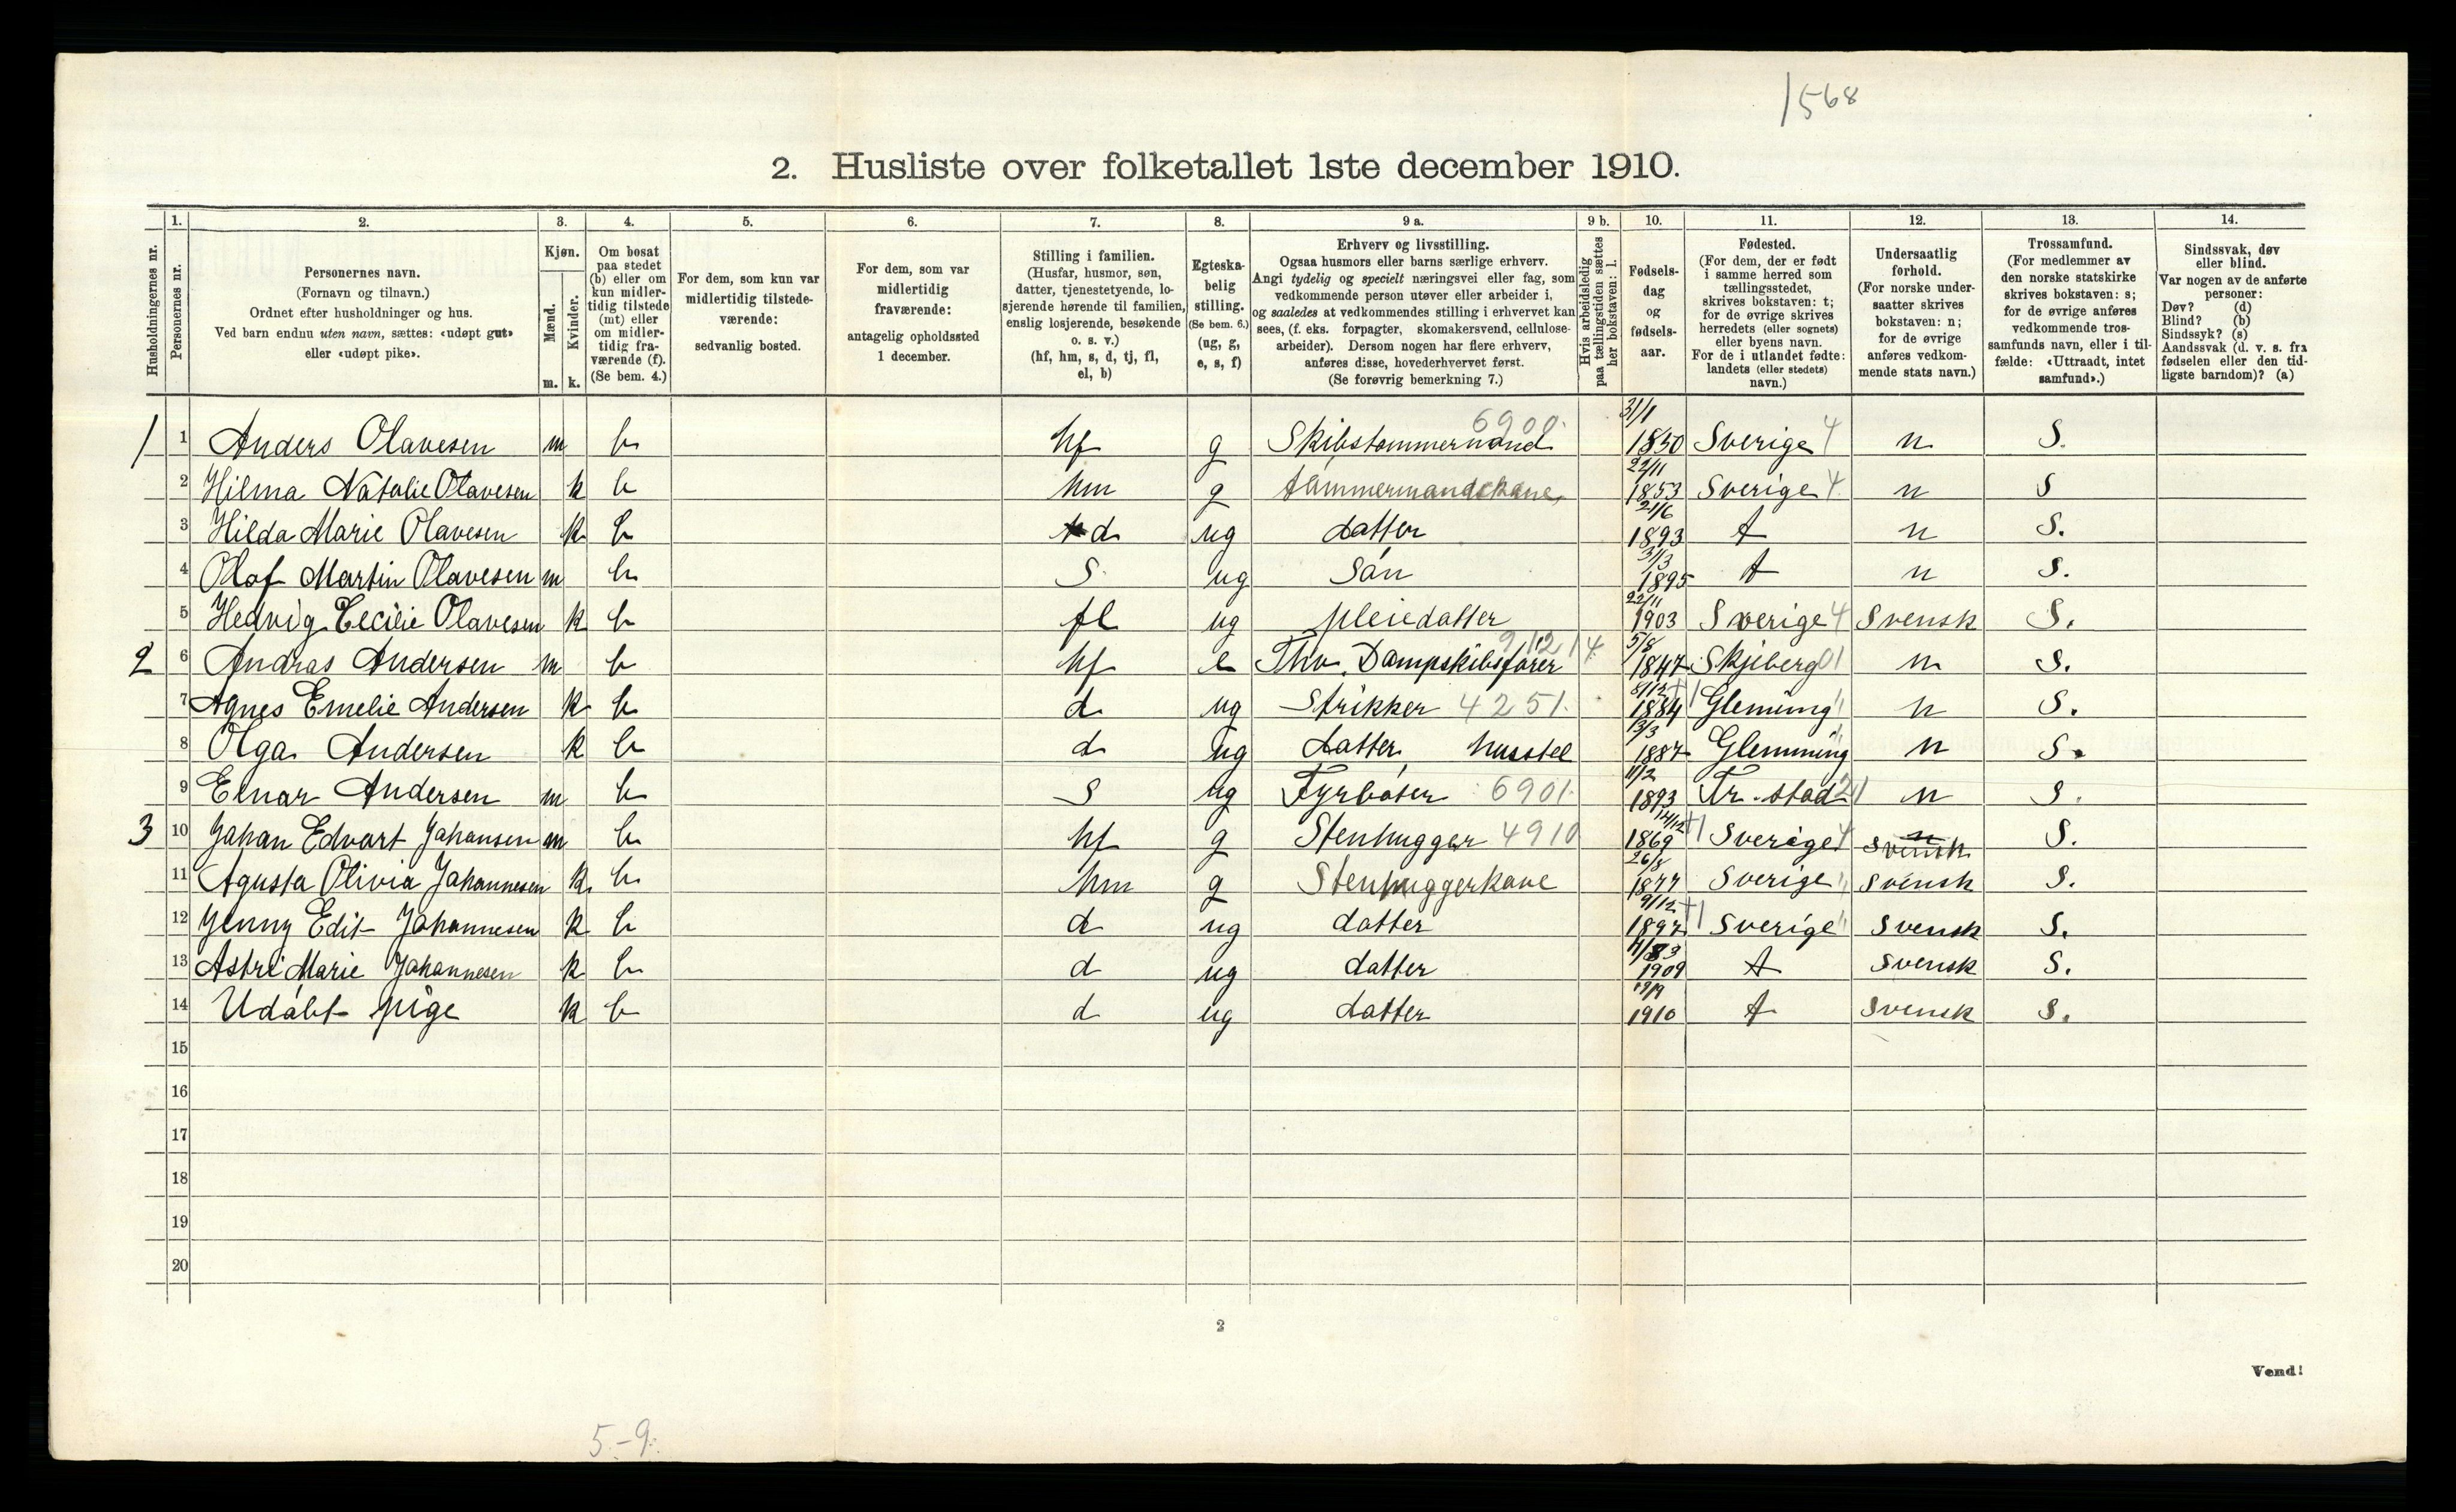 1568
2. Husliste over folketallet 1ste december 1910.
Husholdningernes nr.
1. Personernes nr.
2. Personernes navn. (Fornavn og tilnavn.) Ordnet efter husholdninger og hus. Ved barn endnu uten navn, sættes: «udøpt gut» eller «udøpt pike».
3. Kjøn. Mænd. m. Kvinder. k.
4. Om bosat paa stedet (b) eller om kun midlertidig tilstede (mt) eller om midlertidig fraværende (f). (Se bem. 4.)
5. For dem, som kun var midlertidig tilstedeværende: sedvanlig bosted.
6. For dem, som var midlertidig fraværende: antagelig opholdssted 1 december.
7. Stilling i familien. (Husfar, husmor, søn, datter, tjenestetyende, losjerende hørende til familien, enslig losjerende, besøkende o. s. v.) (hf, hm, s, d, tj, fl, el, b)
8. Egteskabelig stilling. (Se bem. 6.) (ug, g, e, s, f)
9 a. Erhverv og livsstilling. Ogsaa husmors eller barns særlige erhverv. Angi tydelig og specielt næringsvei eller fag, som vedkommende person utøver eller arbeider i, og saaledes at vedkommendes stilling i erhvervet kan sees, (f. eks. forpagter, skomakersvend, cellulosearbeider). Dersom nogen har flere erhverv, anføres disse, hovederhvervet først. (Se forøvrig bemerkning 7.)
9 b. Hvis arbeidsledig paa tællingstiden sættes her bokstaven: l.
10. Fødselsdag og fødselsaar.
11. Fødested. (For dem, der er født i samme herred som tællingsstedet, skrives bokstaven: t; for de øvrige skrives herredets (eller sognets) eller byens navn. For de i utlandet fødte: landets (eller stedets) navn.)
12. Undersaatlig forhold. (For norske undersaatter skrives bokstaven: n; for de øvrige anføres vedkommende stats navn.)
13. Trossamfund. (For medlemmer av den norske statskirke skrives bokstaven: s; for de øvrige anføres vedkommende trossamfunds navn, eller i tilfælde: «Uttraadt, intet samfund».)
14. Sindssvak, døv eller blind. Var nogen av de anførte personer: Døv? (d) Blind? (b) Sindssyk? (s) Aandssvak (d. v. s. fra fødselen eller den tidligste barndom)? (a)
1 1 Anders Olavesen m b hf g Skibstømmermand 6900 31/1 1850 Sverige 4 n S.
2 Hilma Natalie Olavesen k b hm g tømmermandskone 22/11 1853 Sverige 4 n S
3 Hilda Marie Olavesen k b d ug datter 21/6 1893 t n S.
4 Olof Martin Olavesen m b S ug Søn 31/3 1895 t n S.
5 Hedvig Cecilie Olavesen k b fl ug pleiedatter 22/11 1903 Sverige 4 Svensk S.
2 6 Andras Andersen m b hf e Fhv. Dampskibsfører 91214 5/8 1847 Skjeberg 01 n S.
7 Agnes Emelie Andersen k b d ug Strikker 4251 8/12 1884 Glemming n S.
8 Olga Andersen k b d ug datter, husstel 13/3 1887 Glemming n S.
9 Einar Andersen m b S ug Fyrbøter 6901 11/2 1893 Fr.stad 21 n S.
3 10 Johan Edvart Johansen m b hf g Stenhugger 4910 14/12 1869 Sverige 4 n Svensk S.
11 Agusta Olivia Johannesen k b hm g Stenhuggerkone 26/8 1877 Sverige Svensk S.
12 Jenny Edit Johannesen k b d ug datter 9/12 1897 Sverige Svensk S.
13 Astri Marie Johannesen k b d ug datter 1909 t Svensk S.
14 Udøbt pige k b d ug datter 19/9 1910 t Svensk S.
15
16
17
18
19
20
2
Vend!
5-9.